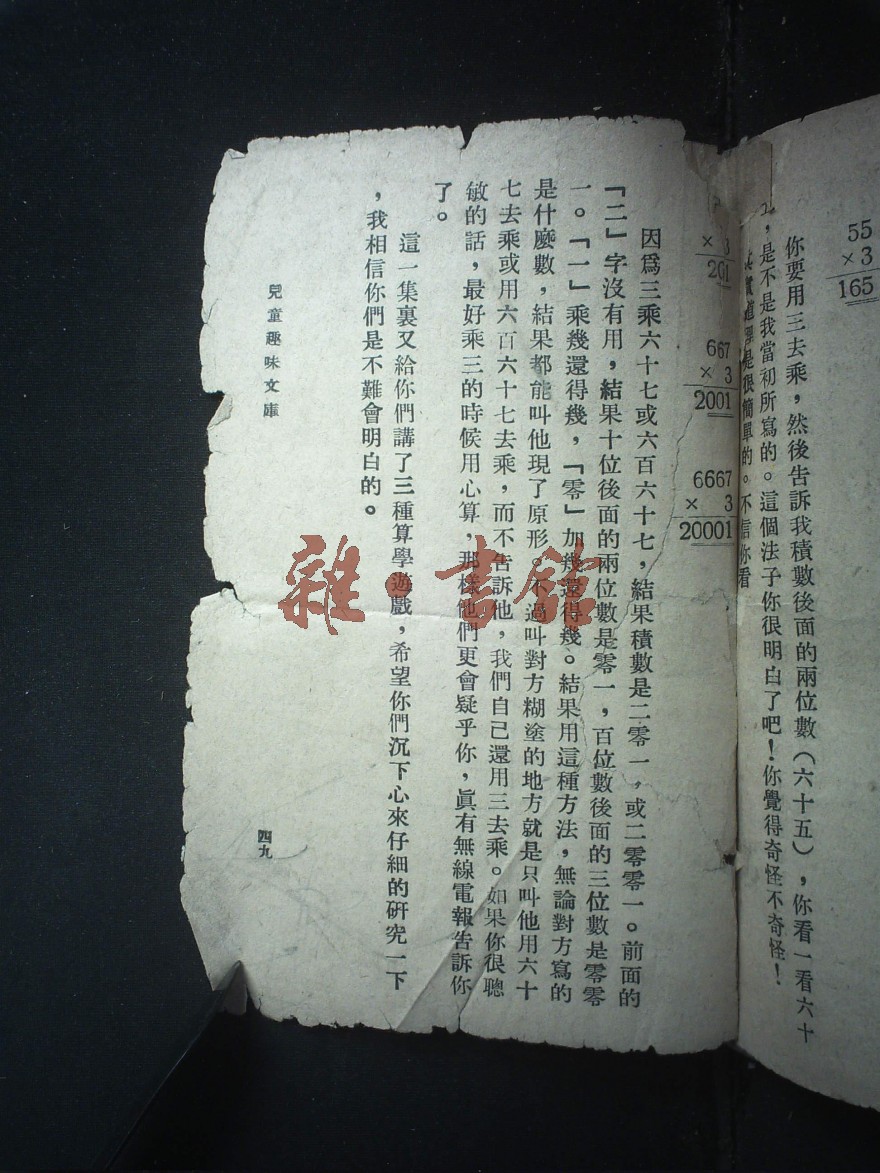 55
× 3
165
你要用三去乘，然後告訴我積數後面的兩位數（六十五），你看一看六十
，是不是我當初所寫的。這個法子你很明白了吧！你覺得奇怪不奇怪！
道理是很簡單的。不信你看
× 3
201
667
× 3
2001
6667
× 3
20001
因爲三乘六十七或六百六十七，結果積數是二零一，或二零零一。前面的
「二」字沒有用，結果十位後面的兩位數是零一，百位數後面的三位數是零零
一。「一」乘幾還得幾，「零」加幾還得幾。結果用這種方法，無論對方寫的
是什麼數，結果都能叫他現了原形。不過叫對方糊塗的地方就是只叫他用六十
七去乘或用六百六十七去乘，而不告訴他，我們自己還用三去乘。如果你很聰
敏的話，最好乘三的時候用心算，那樣他們更會疑乎你，眞有無線電報告訴你
了。
這一集裏又給你們講了三種算學遊戲，希望你們沉下心來仔細的研究一下
，我相信你們是不難會明白的。
兒童趣味文庫
四九
雜·書館